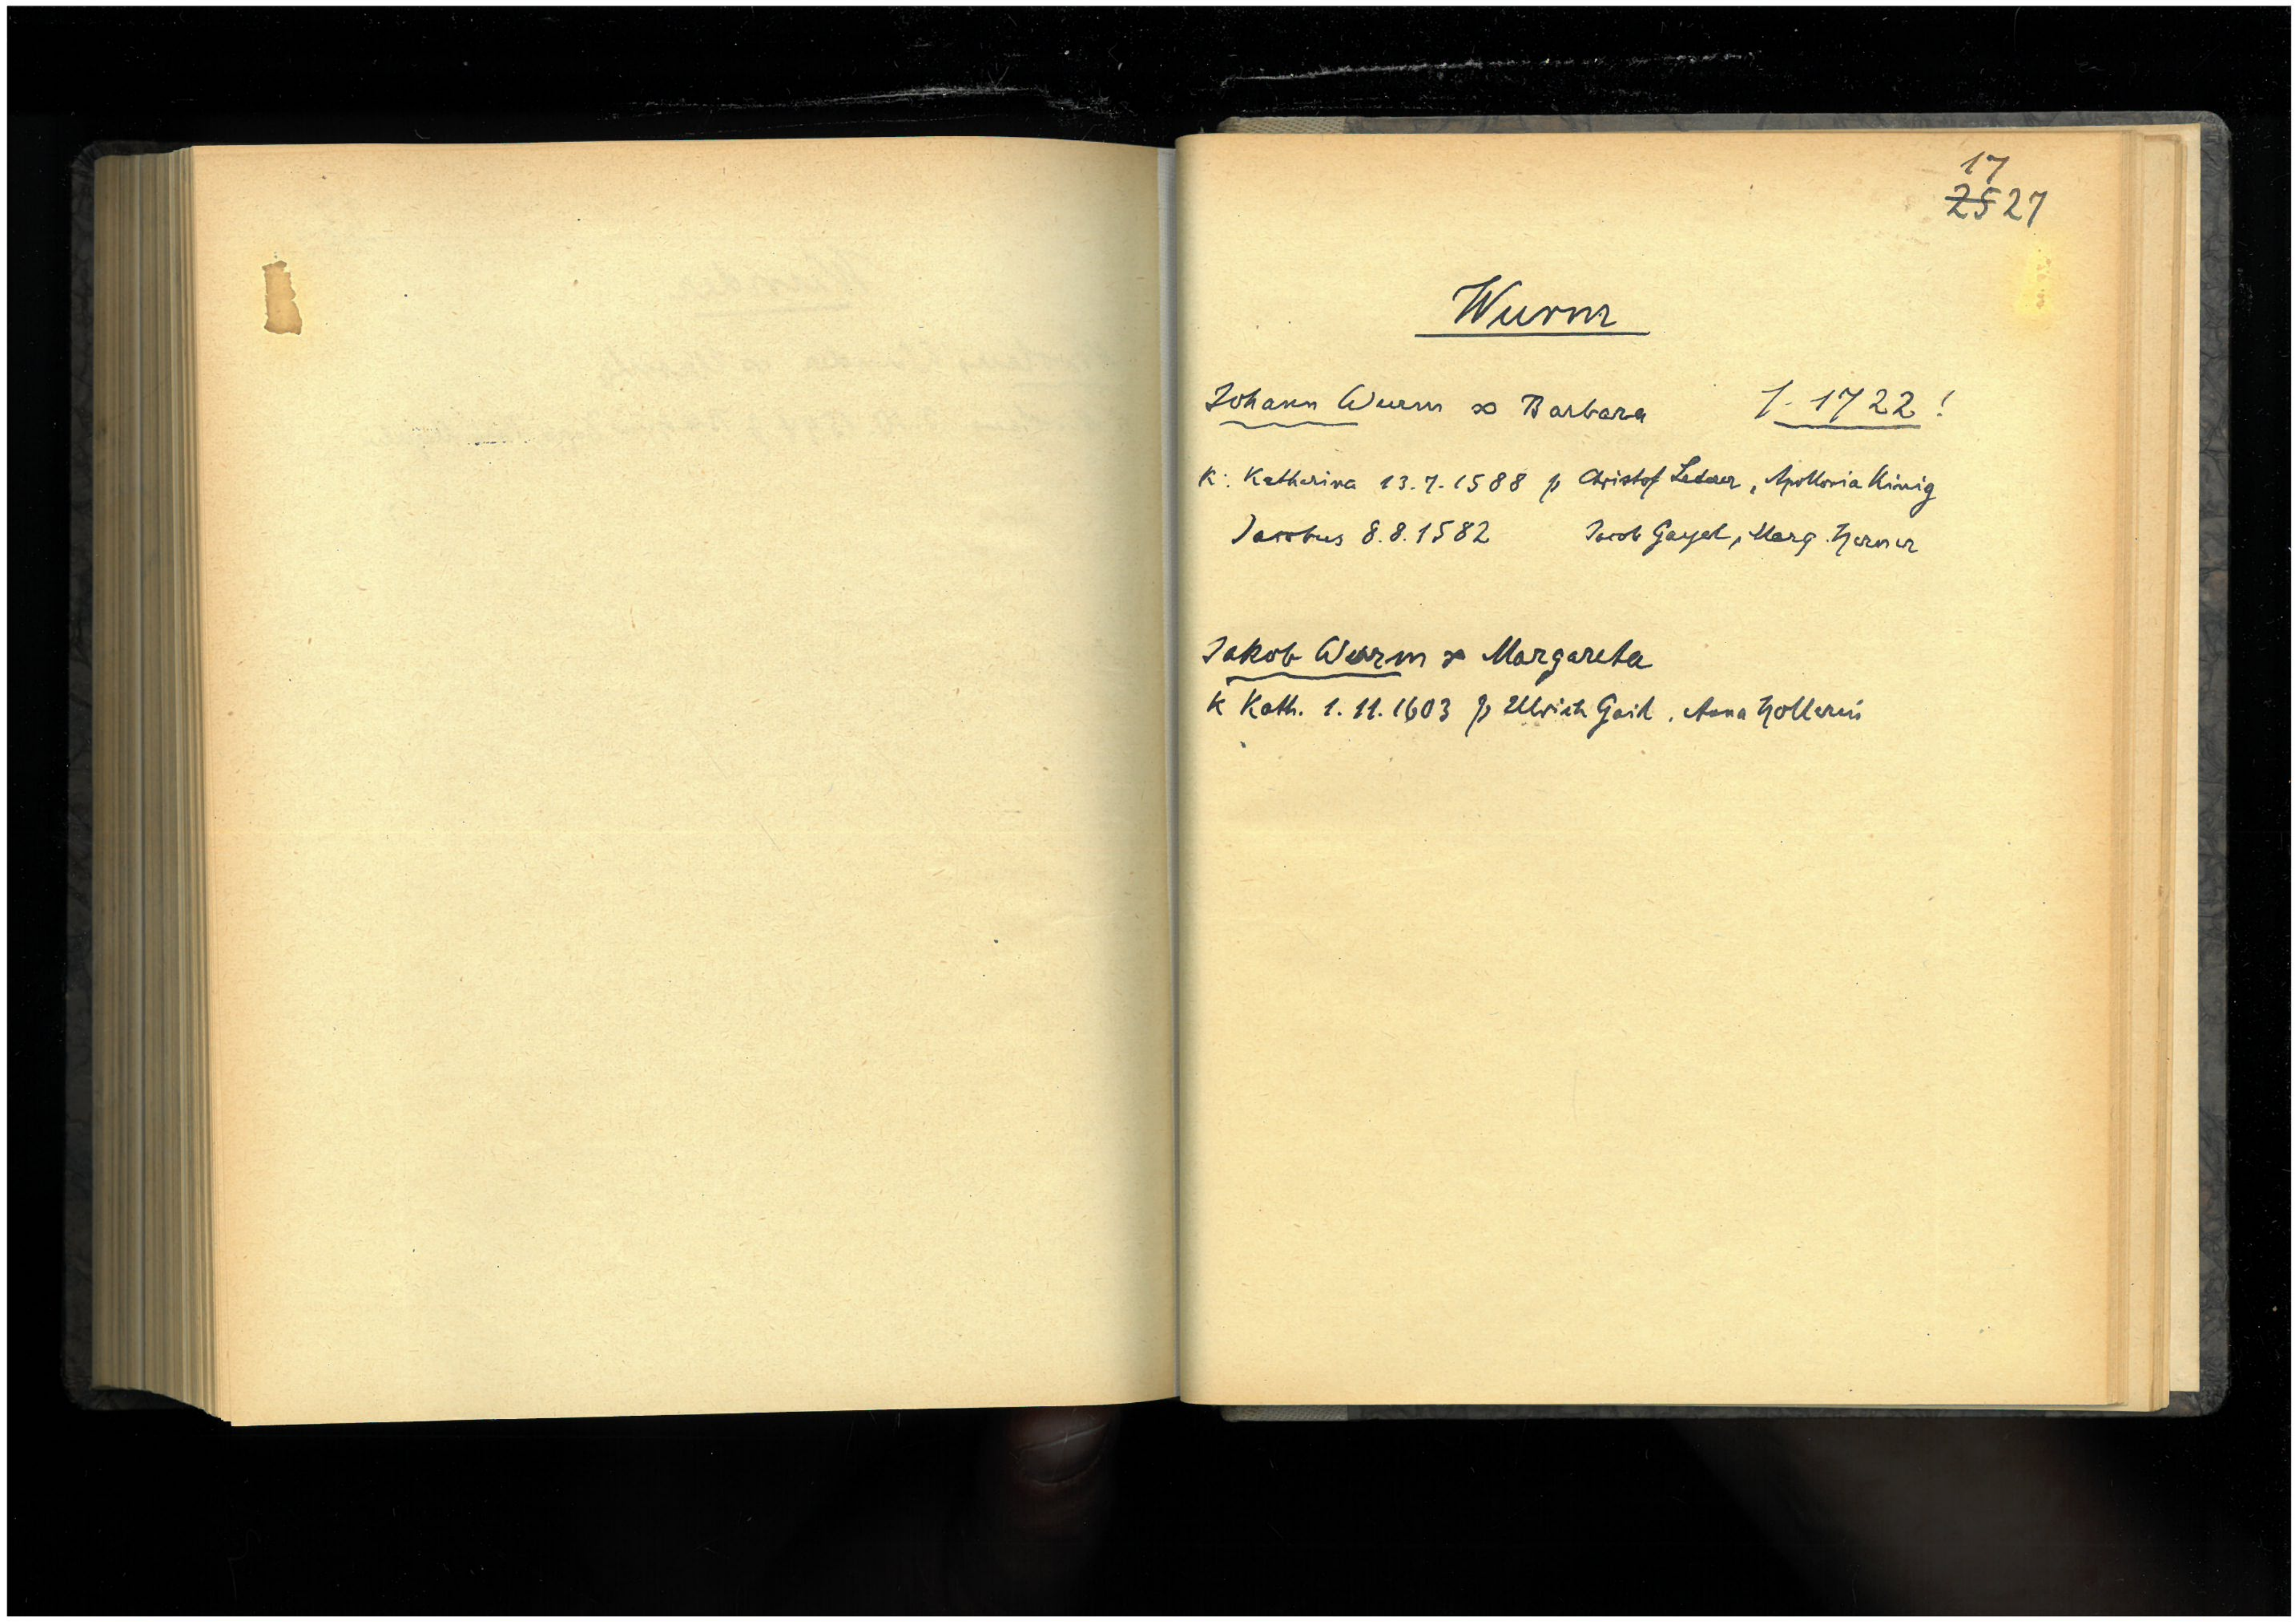 17
25 27
Wurm
Johann Wurm ∞ Barbara 1-1722!
K: Katherina 13.7.1588 p Christof Lederer, Apollonia König
Jacobus 8.8.1582 Jacob Gayel, Marg. Herner
Jakob Wurm ∞ Margareta
K Kath. 1.11.1603 p Ulrich Gaid, Anna